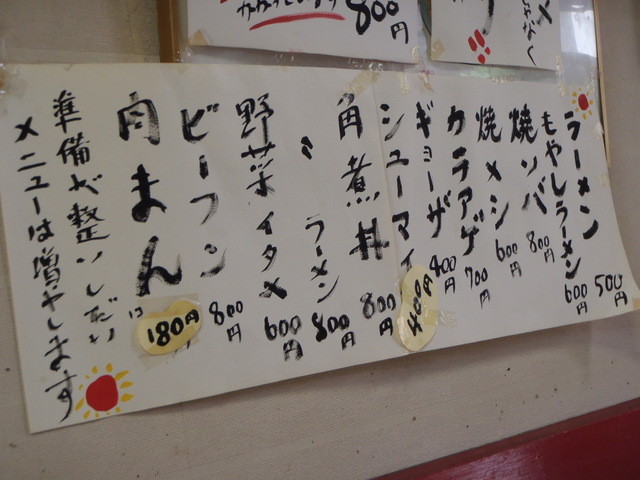 ラーメン 500円
もやしラーメン 600円
焼ソバ 800円
焼メシ 600円
カラアゲ 700円
ギョーザ 400円
シューマイ 400円
角煮丼 800円
〃 ラーメン 800円
野菜イタメ 600円
ビーフン 800円
肉まん 180円
準備が整いしだい
メニューは増やします
800円